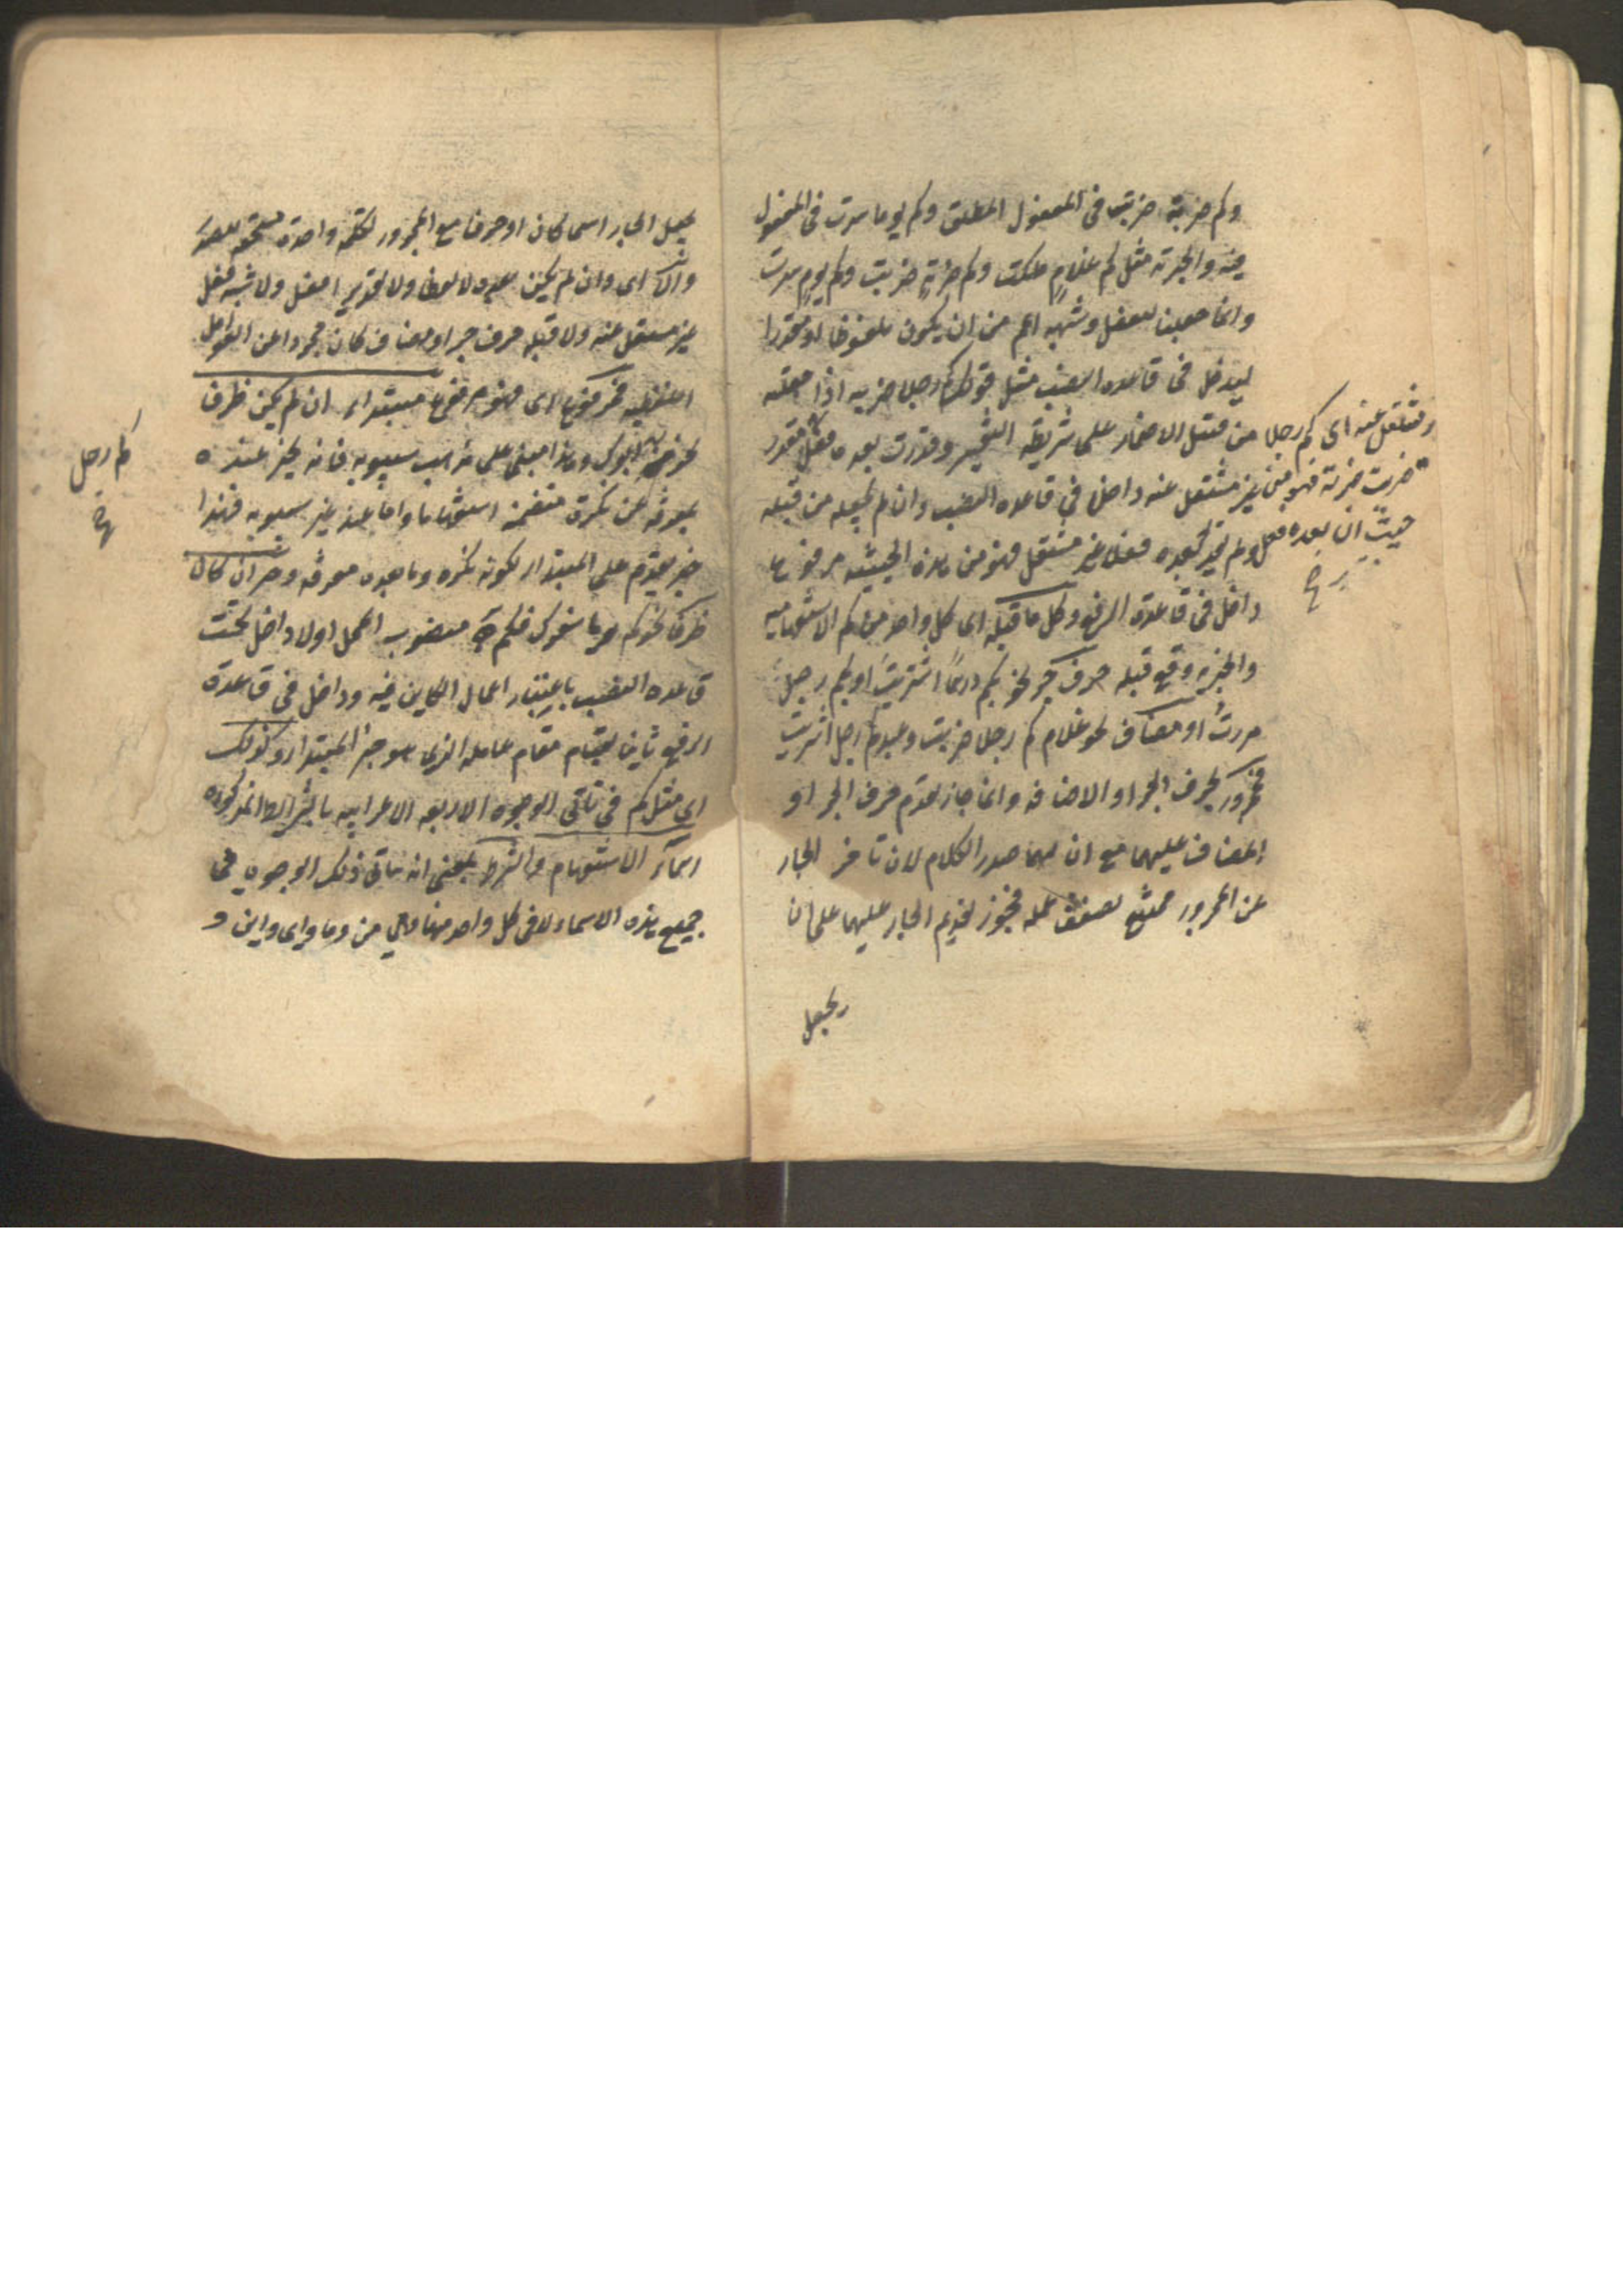 وكم ضربة ضربت فى المفعول المطلق وكم يوما سرت فى المفعول
فيه والخبرية مثل كم غلام ملكت وكم ضربة ضربت وكم يوم سرت
وانما جعلنا الفعل وشبهه اعم من ان يكون ملفوظا او مقدرا
ليدخل فى قاعدة النصب مثل قولك كم رجلا ضربته اذا جعلته
من قبيل الاضمار على شريطة التفسير وقدرت بعده فعل مقدر
غير مشتغل عنه داخل فى قاعدة النصب وان لم تجعله من قبيله
ولم تقدر بعده فعل غير مشتغل فهو من هذه الحيثية مرفوع
داخل فى قاعدة الرفع وكل ما قبله اى كل واحد من كم الاستفهامية
والخبرية وقع قبله حرف جر نحو بكم درهما اشتريت او بكم رجل
مررت او مضاف نحو غلام كم رجلا ضربت وعبد كم رجل اشتريت
فمجرور بحرف الجر او الاضافة وانما جاز تقدم حرف الجر او
المضاف عليهما مع ان لهما صدر الكلام لان تاخر الجار
عن المجرور ممتنع لضعف عمله فجوز تقديم الجار عليهما على ان
يجعل
مشتغل عنه اى كم رجلا
ضربت ضربته فهو من
حيث ان بعده فعل
يجعل الجار اسما كان او حرفا مع المجرور ككلمة واحدة مستحقة للصدر
والا اى وان لم يكن بعده لا لفظا ولا تقديرا فعل ولا شبه فعل
غير مشتغل عنه ولا قبله حرف جر او مضاف كان مجردا عن العوامل
اللفظية فمرفوع اى فهو مرفوع مبتداء ان لم يكن ظرفا
نحو كم ابوك وهذا مبنى على مذهب سيبويه فانه يخبر عنده
بمعرفة عن نكرة متضمنة استفهاما واما عند غير سيبويه فهذا
خبر مقدم على المبتدا لكونه نكرة وما بعده معرفة وخبر ان كان
ظرفا نحو كم يوما سفرك فكم منصوب المحل اولا داخل تحت
قاعدة النصب باعتبار العامل الكاين فيه وداخل فى قاعدة
الرفع ثانيا لقيام مقام عامله الذى هو خبر المبتدا وكذلك
اى مثل كم فى تاتى الوجوه الاربعة الاعرابية بالشرايط المذكورة
اسماء الاستفهام والشرط بمعنى انه تاتى ذلك الوجوه فى
جميع هذه الاسماء لا فى كل واحد منها فهى من وما واى واين و
كم رجل